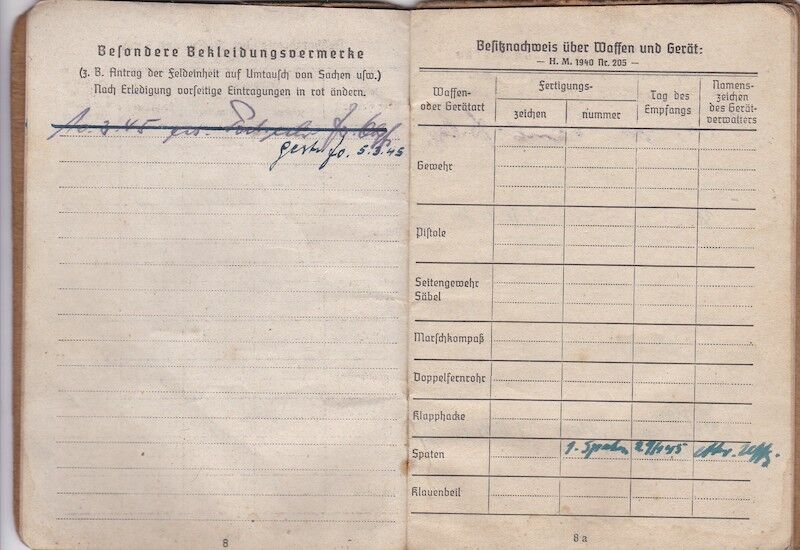 Besondere Bekleidungsvermerke
(z. B. Antrag der Feldeinheit auf Umtausch von Sachen usw.)
Nach Erledigung vorseitige Eintragungen in rot ändern.
3.45
gestr. 5.3.45
8
Besitznachweis über Waffen und Gerät:
— H. M. 1940 Nr. 205 —
Waffen- oder Gerätart
Fertigungs-
zeichen
nummer
Tag des Empfangs
Namens- zeichen des Gerät- verwalters
Gewehr
Pistole
Seitengewehr
Säbel
Marschkompaß
Doppelfernrohr
Klapphacke
Spaten 1 Spaten Uffz.
Klauenbeil
8 a